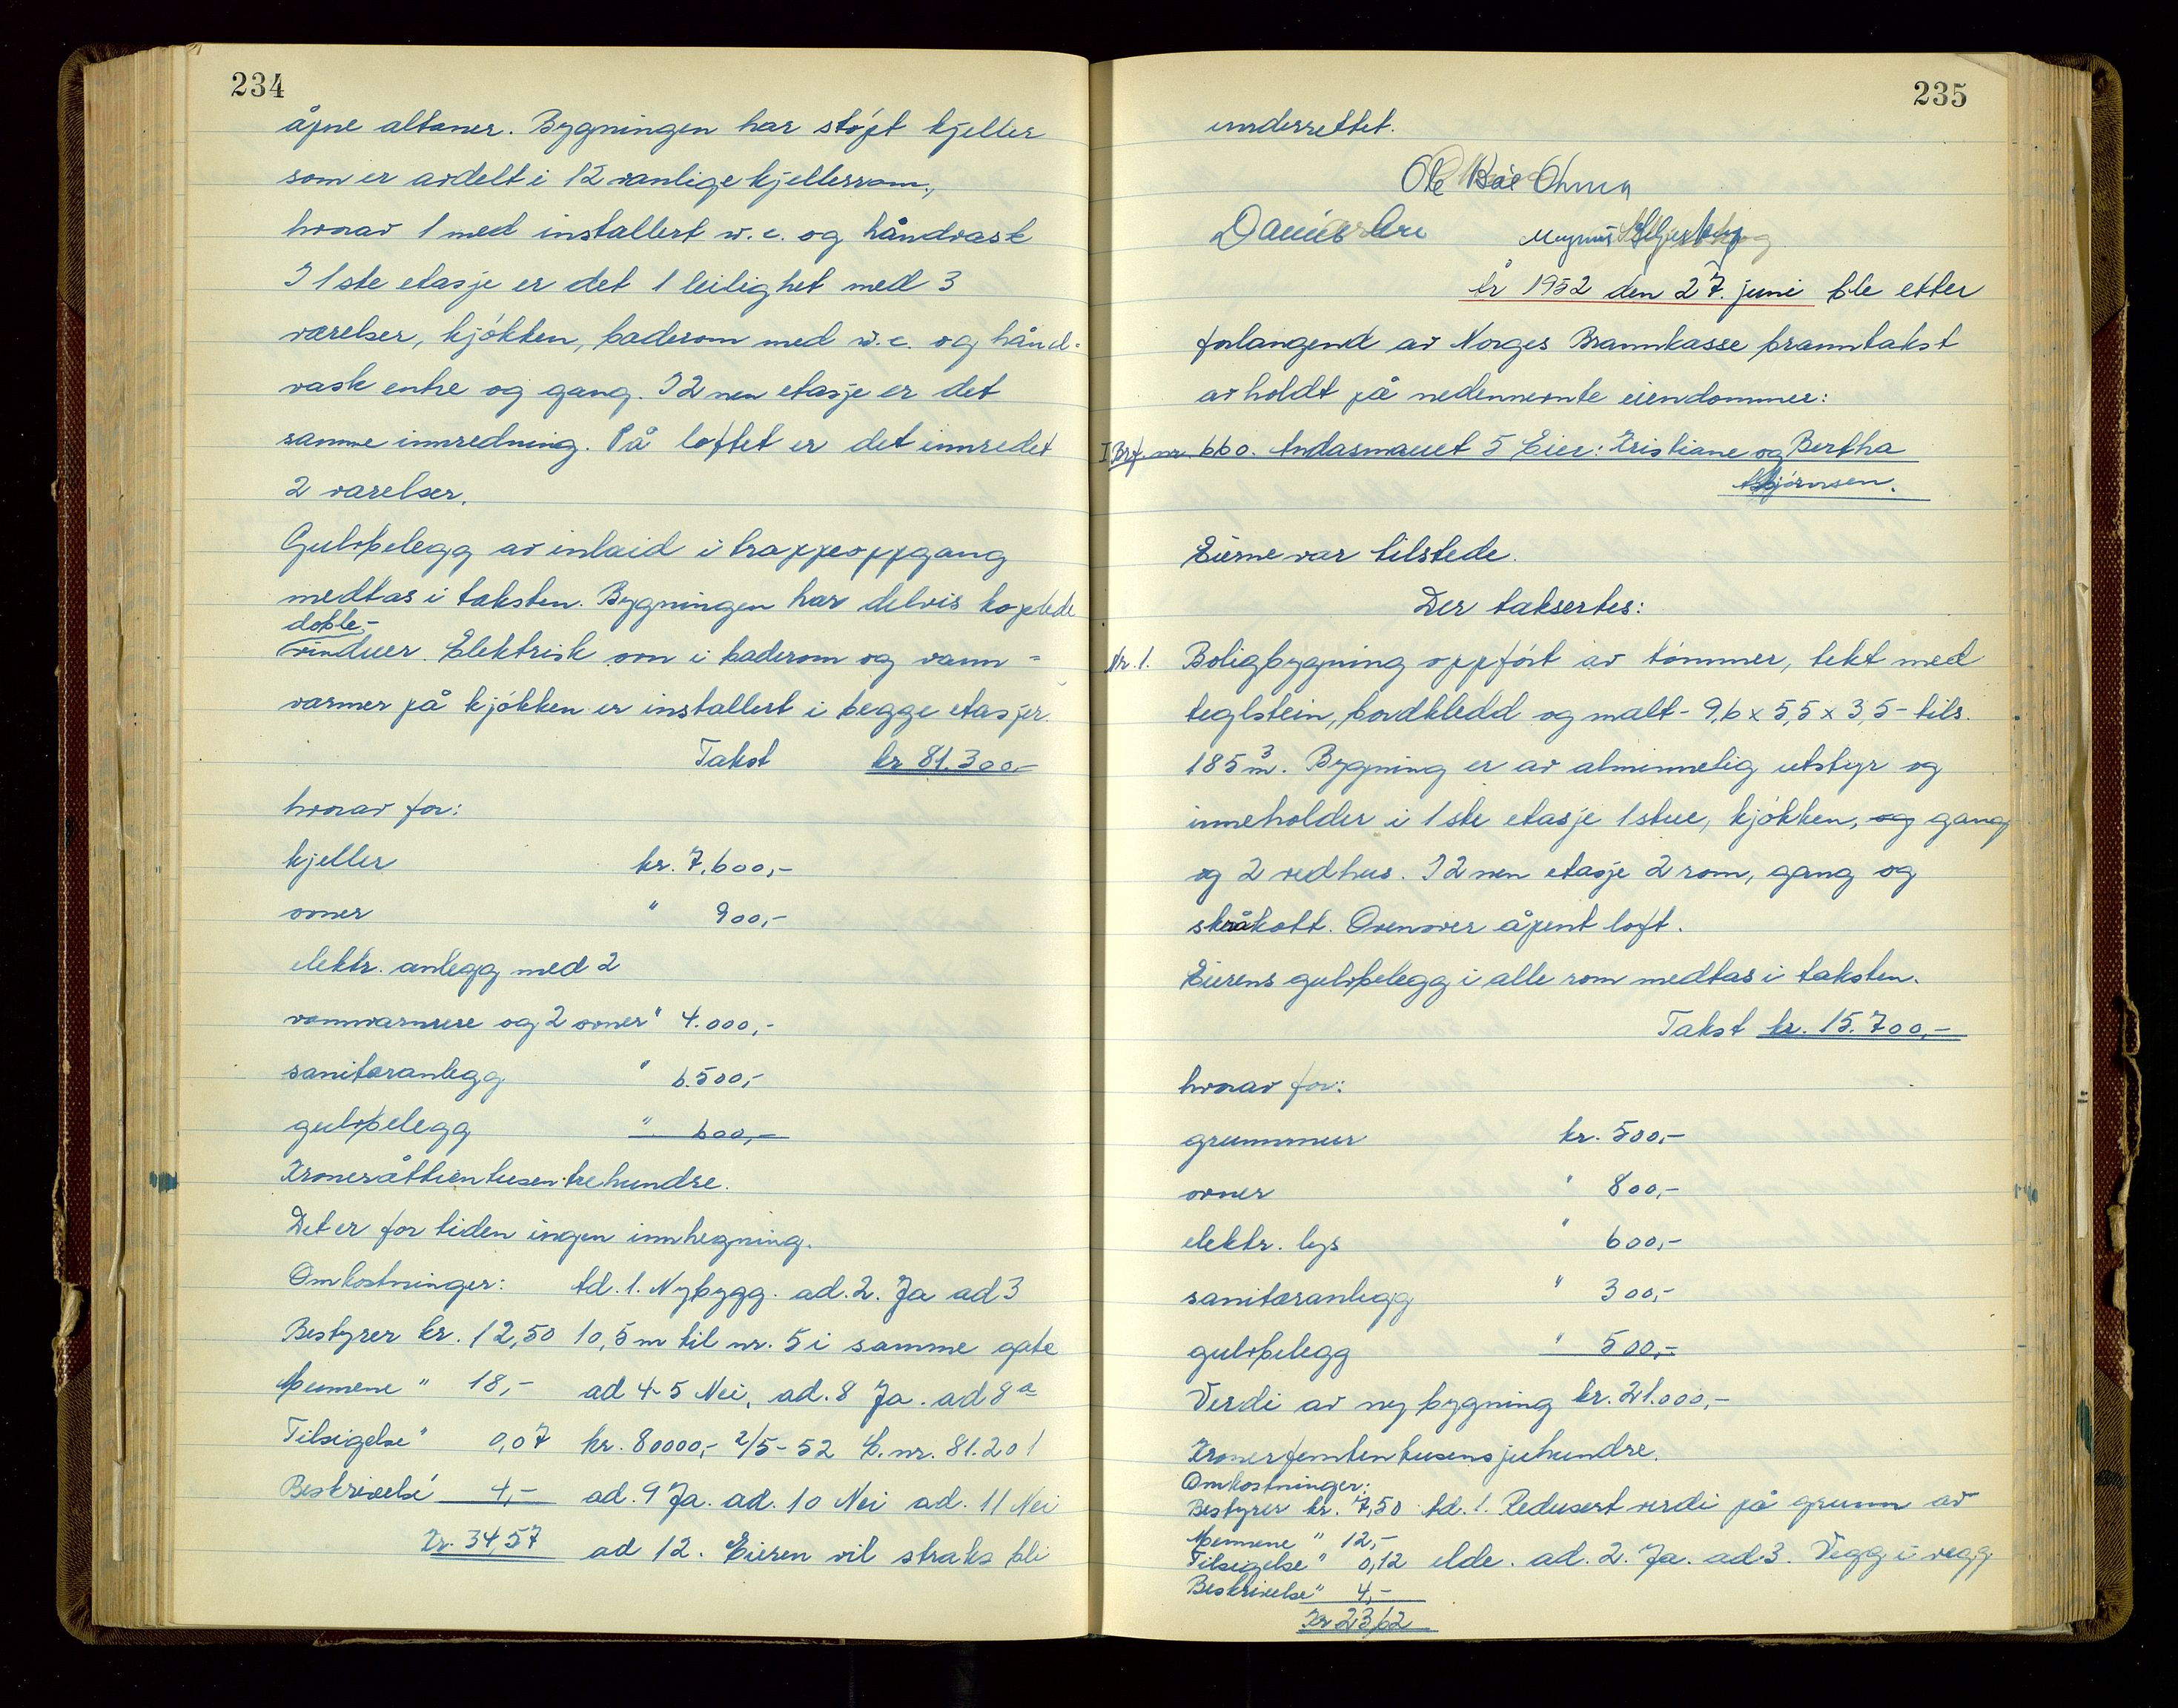 234
åpne altaner. Bygningen har støpt kjeller
som er avdelt i 12 vanlige kjellerrom,
hvorav 1 med installert w.c. og håndvask
I 1ste etasje er det 1 leilighet med 3
værelser, kjøkken, baderom med w.c. og hånd=
vask entre og gang. I 2nen etasje er det
samme innredning. På loftet er det innredet
2 værelser.
Gulvbelegg av inlaid i trappeoppgang
medtas i taksten. Bygningen har delvis koplede
doble-
vinduer. Elektrisk ovn i baderom og vann=
varmer på kjøkken er installert i begge etasjer.
Takst kr 81.300,-
hvorav for:
kjeller kr. 7.600,-
ovner " 900,-
elektr. anlegg med 2
vannvarmere og 2 ovner " 4.000,-
sanitæranlegg " 6.500,-
gulvbelegg " 600,-
Kroneråttientusentrehundre.
Det er for tiden ingen innhegning.
Omkostninger: Ad. 1. Nybygg. ad. 2. Ja ad 3
Bestyrer kr. 12,50 10,5 m til nr. 5 i samme gate
Mennene " 18,- ad 4-5 Nei, ad. 8 Ja. ad 8a
Tilsigelse " 0,07 kr. 80000,- 2/5-52 L.nr. 81.201
Beskrivelse 4,- ad. 9 Ja. ad. 10 Nei ad. 11 Nei
Kr. 34,57 ad 12. Eieren vil straks bli
235
underrettet.
Ole
År 1952 den 27. juni ble etter
forlangend av Norges Brannkasse branntakst
avholdt på nedennevnte eiendommer:
I Brf. nr. 660. Andasmauet 5 Eier: Kristiane og Bertha
Asbjørnsen.
Eierne var tilstede.
Der taksertes:
Nr. 1. Boligbygning oppført av tømmer, tekt med
teglstein, bordkledd og malt - 9,6 x 5,5 x 3,5 - tils.
185 m3. Bygning er av alminnelig utstyr og
inneholder i 1ste etasje 1 stue, kjøkken, og gang
og 2 vedhus. I 2nen etasje 2 rom, gang og
skråkott. Ovenover åpent loft.
Eierens gulvbelegg i alle rom medtas i taksten.
Takst kr. 15.700,-
hvorav for:
grunnmur kr. 500,-
ovner " 800,-
elektr. lys " 600,-
sanitæranlegg " 300,-
gulvbelegg " 500,-
Verdi av ny bygning kr. 21.000,-
Kronerfemtentusensjuhundre.
Omkostninger:
Bestyrer kr. 7,50 Ad. 1. Redusert verdi på grunn av
Mennene " 12,-
Tilsigelse " 0,12 elde. ad. 2. Ja. ad. 3. Vegg i vegg
Beskrivelse " 4,-
Kr 23,62